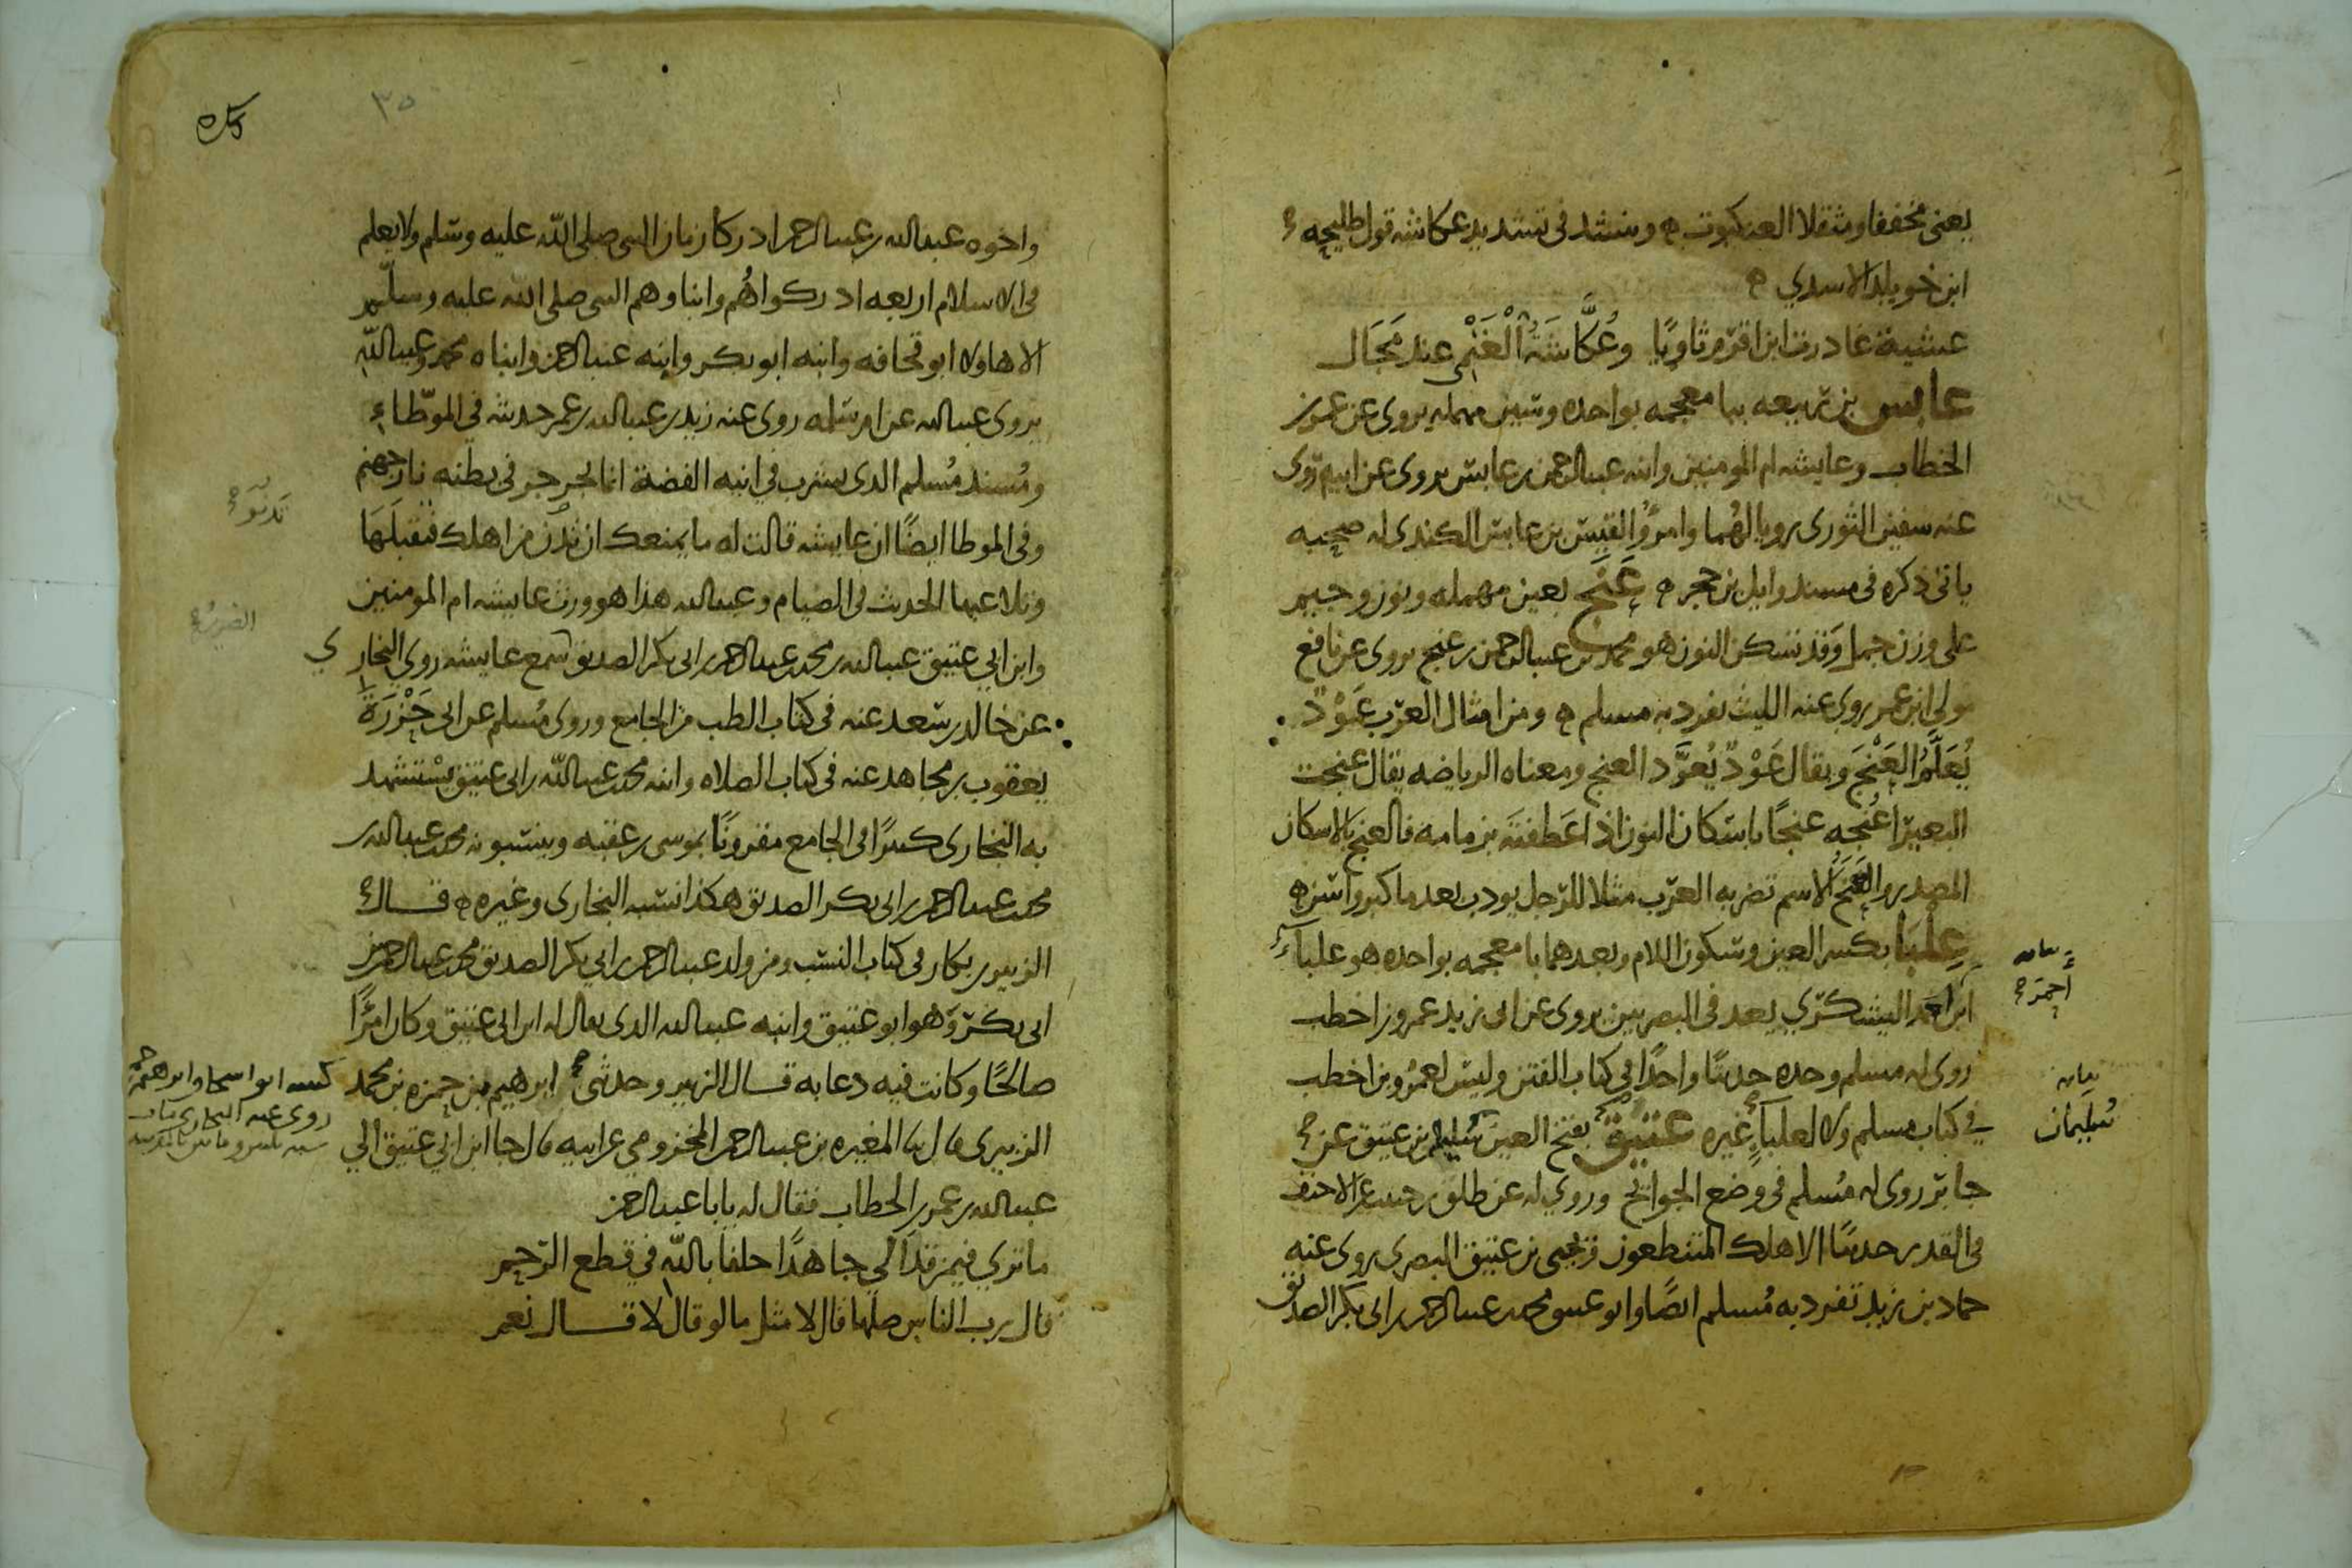 يعنى مخففا ومثقلا العنكبوت ه وينشد فى تشديد عكاشه قول طليحه
ابن خويلد الاسدي ه
عشية غادرت ابن اقرم ثاويًا وعُكَّاشَةَ الْغَنْمى عند مَجَال
عابس بن ربيعه ببا معجمه بواحده وسين مهمله يروى عن عمر بن
الخطاب وعايشه ام المومنين وابنه عبد الرحمن بن عابس يروى عن ابيه روى
عنه سفين الثورى رويا لهُما وامرؤ القيس بن عابس الكندى له صحبه
ياتى ذكره فى مسند وايل بن حجر ه عَنَج بعين مهمله ونون وجيم
على وزن جمل وَقد تسكن النون هو محمد بن عبد الرحمن بن عنج يروى عن نافع
مولى ابن عمر روى عنه الليث تفرد به مسلم ه ومن امثال العرب عَوْدٌ
يُعَلَّمُ العَنْجَ ويقال عَوْدٌ يُعَوَّد العنج ومعناه الرياضه يقال عنجت
البعير اعْنُجه عنجًا باسكان النون اذا عَطفتَه بزمامه فالعنج بالاسكان
المصدر والعَنَجُ الاسم تضربه العرب مثلا للرجل يودب بعد ما كبر واسن ه
عِلْبَا بكسر العين وسكون اللام وبعدهما با معجمه بواحده هو علباءُ
ابن احمد اليشكري يعد فى البصريين يروى عن ابى زيد عمرو بن اخطب
روى له مسلم وحده حديثًا واحدًا فى كتاب الفتن وليس لعمرو بن اخطب
في كتاب مسلم ولا لعلباءٍ غيره عَتيقٌ بفتح العين سليمن بن عتيق عن
جابر روى له مُسلم فى وضع الجوائح وروي له عن طلق بن حبيب عن الاحنف
فى القدر حديث الا هلك المتنطعون ويحيى بن عتيق البصرى روى عنه
حماد بن زيد تفرد به مُسلم ايضًا وابو عتيق محمد بن عبد الرحمن بن ابى بكر الصديق
بيانه
أحمَرَ
بيانه
سُليمان
٣٥
واخوه عبد الله بن عبد الرحمن ادركا زمان النبى صلى اللّه عليه وسلم ولا يعلم
فى الاسلام اربعه ادركوا هُم وابناوهم النبى صلى الله عليه وسلّم
الا هاولا ابو قحافه وابنه ابو بكر وابنه عبد الرحمن وابناه محمد وعبد اللّه
يروى عبد الله عن ام سلمه روى عنه زيد بن عبد الله بن عمر حديثه في الموطّاء
ومُسند مُسلم الذى يشرب في انيه الفضة انما يجرجر فى بطنه نار جهنم
وفى الموطا ايضًا ان عايشه قالت له ما يمنعك ان تدن من اهلك فتقبلَهَا
وتلاعبها الحديث فى الصيام وعبد الله هذا هو ورث عايشه ام المومنين
وابن ابي عتيق عبد الله بن محمد بن عبد الرحمن بن ابى بكر الصديق سمع عايشه روي البخارى
عن خالد بن سعد عنه فى كتاب الطب من الجامع وروى مُسلم عن ابى حَزْرَةَ
يعقوب بن مجاهد عنه فى كتاب الصلاه وابنه محمد بن عبد اللّه بن ابى عتيق يسْتشهد
به البخارى كثيرًا فى الجامع مقرونًا بموسى بن عقبه وينسبونه محمد بن عبد الله بن
محمد بن عبد الرحمن بن ابى بكر الصديق هكذا نسبه البخارى وغيره ه قال
الزبير بن بكار فى كتاب النسب ومن ولد عبد الرحمن بن ابي بكر الصديق محمد بن عبد الرحمن بن
ابى بكر وَهو ابو عتيق وابنه عبد الله الذى يقال له ابن ابى عتيق وكان امرًا
صالحًا وكانت فيه دعابه قال الزبير وحدثنى ابرهيم بن حمزه بن محمد
الزبيرى قال ثنا المغيره بن عبد الرحمن المخزومي عن ابيه قال جا ابن ابي عتيق الي
عبد الله بن عمر بن الخطاب فقال له يابا عبد الرحمن
ما ترى فيمن قد آلي جاهدًا حلفا باللّه في قطع الرّحم
قال برب الناس صلها قال لا مثل ما لو قال لا قال نعم
تَدنُوَ
كنيته ابو اسحاق ابن حمزه
روى عنه البخارى مات